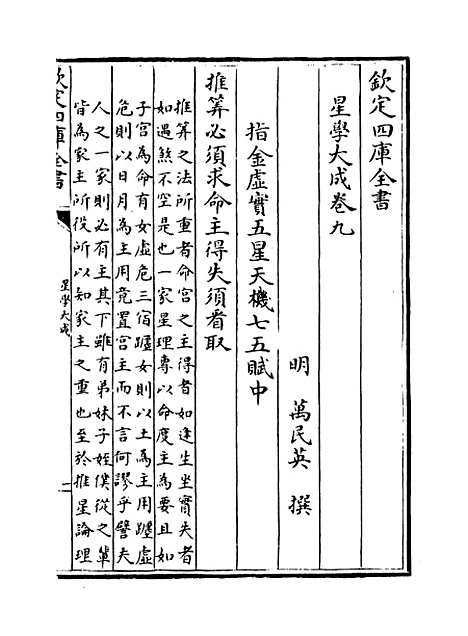 欽定四庫全書
星學大成卷九
明 萬民英 撰
指金虛實五星天機七五賦中
推算必須求命主得失須看取
推算之法所重者命宮之主得者如逢生坐實失者
如遇煞不空是也一家星理專以命度主為要且如
子宮為命有女虛危三宿躔女則以土為主用躔虛
危則以日月為主用竟置宮主而不言何謬乎譬夫
人之一家則必有主其下雖有弟妹子姪僕從之輩
皆為家主所役所以知家主之重也至於推星論理
欽定四庫全書
星學大成
二